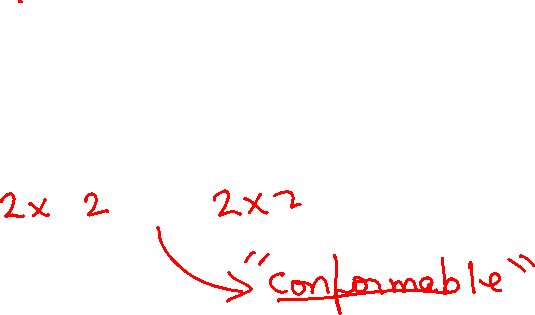 2 x 2 2 x 2
"conformable"